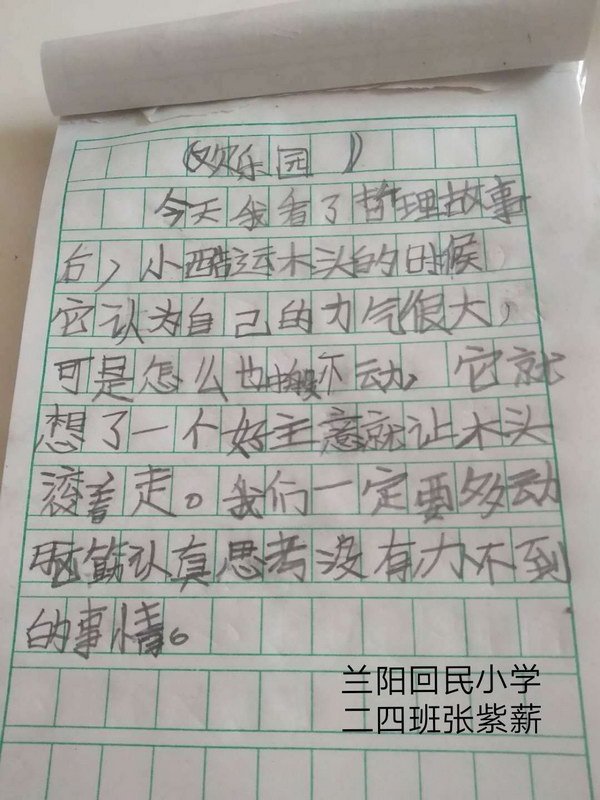 《欢乐园》
今天我看了哲理故事
后,小酷运木头的时候
它认为自己的力气很大,
可是怎么也搬不动,它就
想了一个好主意就让木头
滚着走。我们一定要多动
脑筋认真思考没有力不到
的事情。
兰阳回民小学
二四班张紫薪